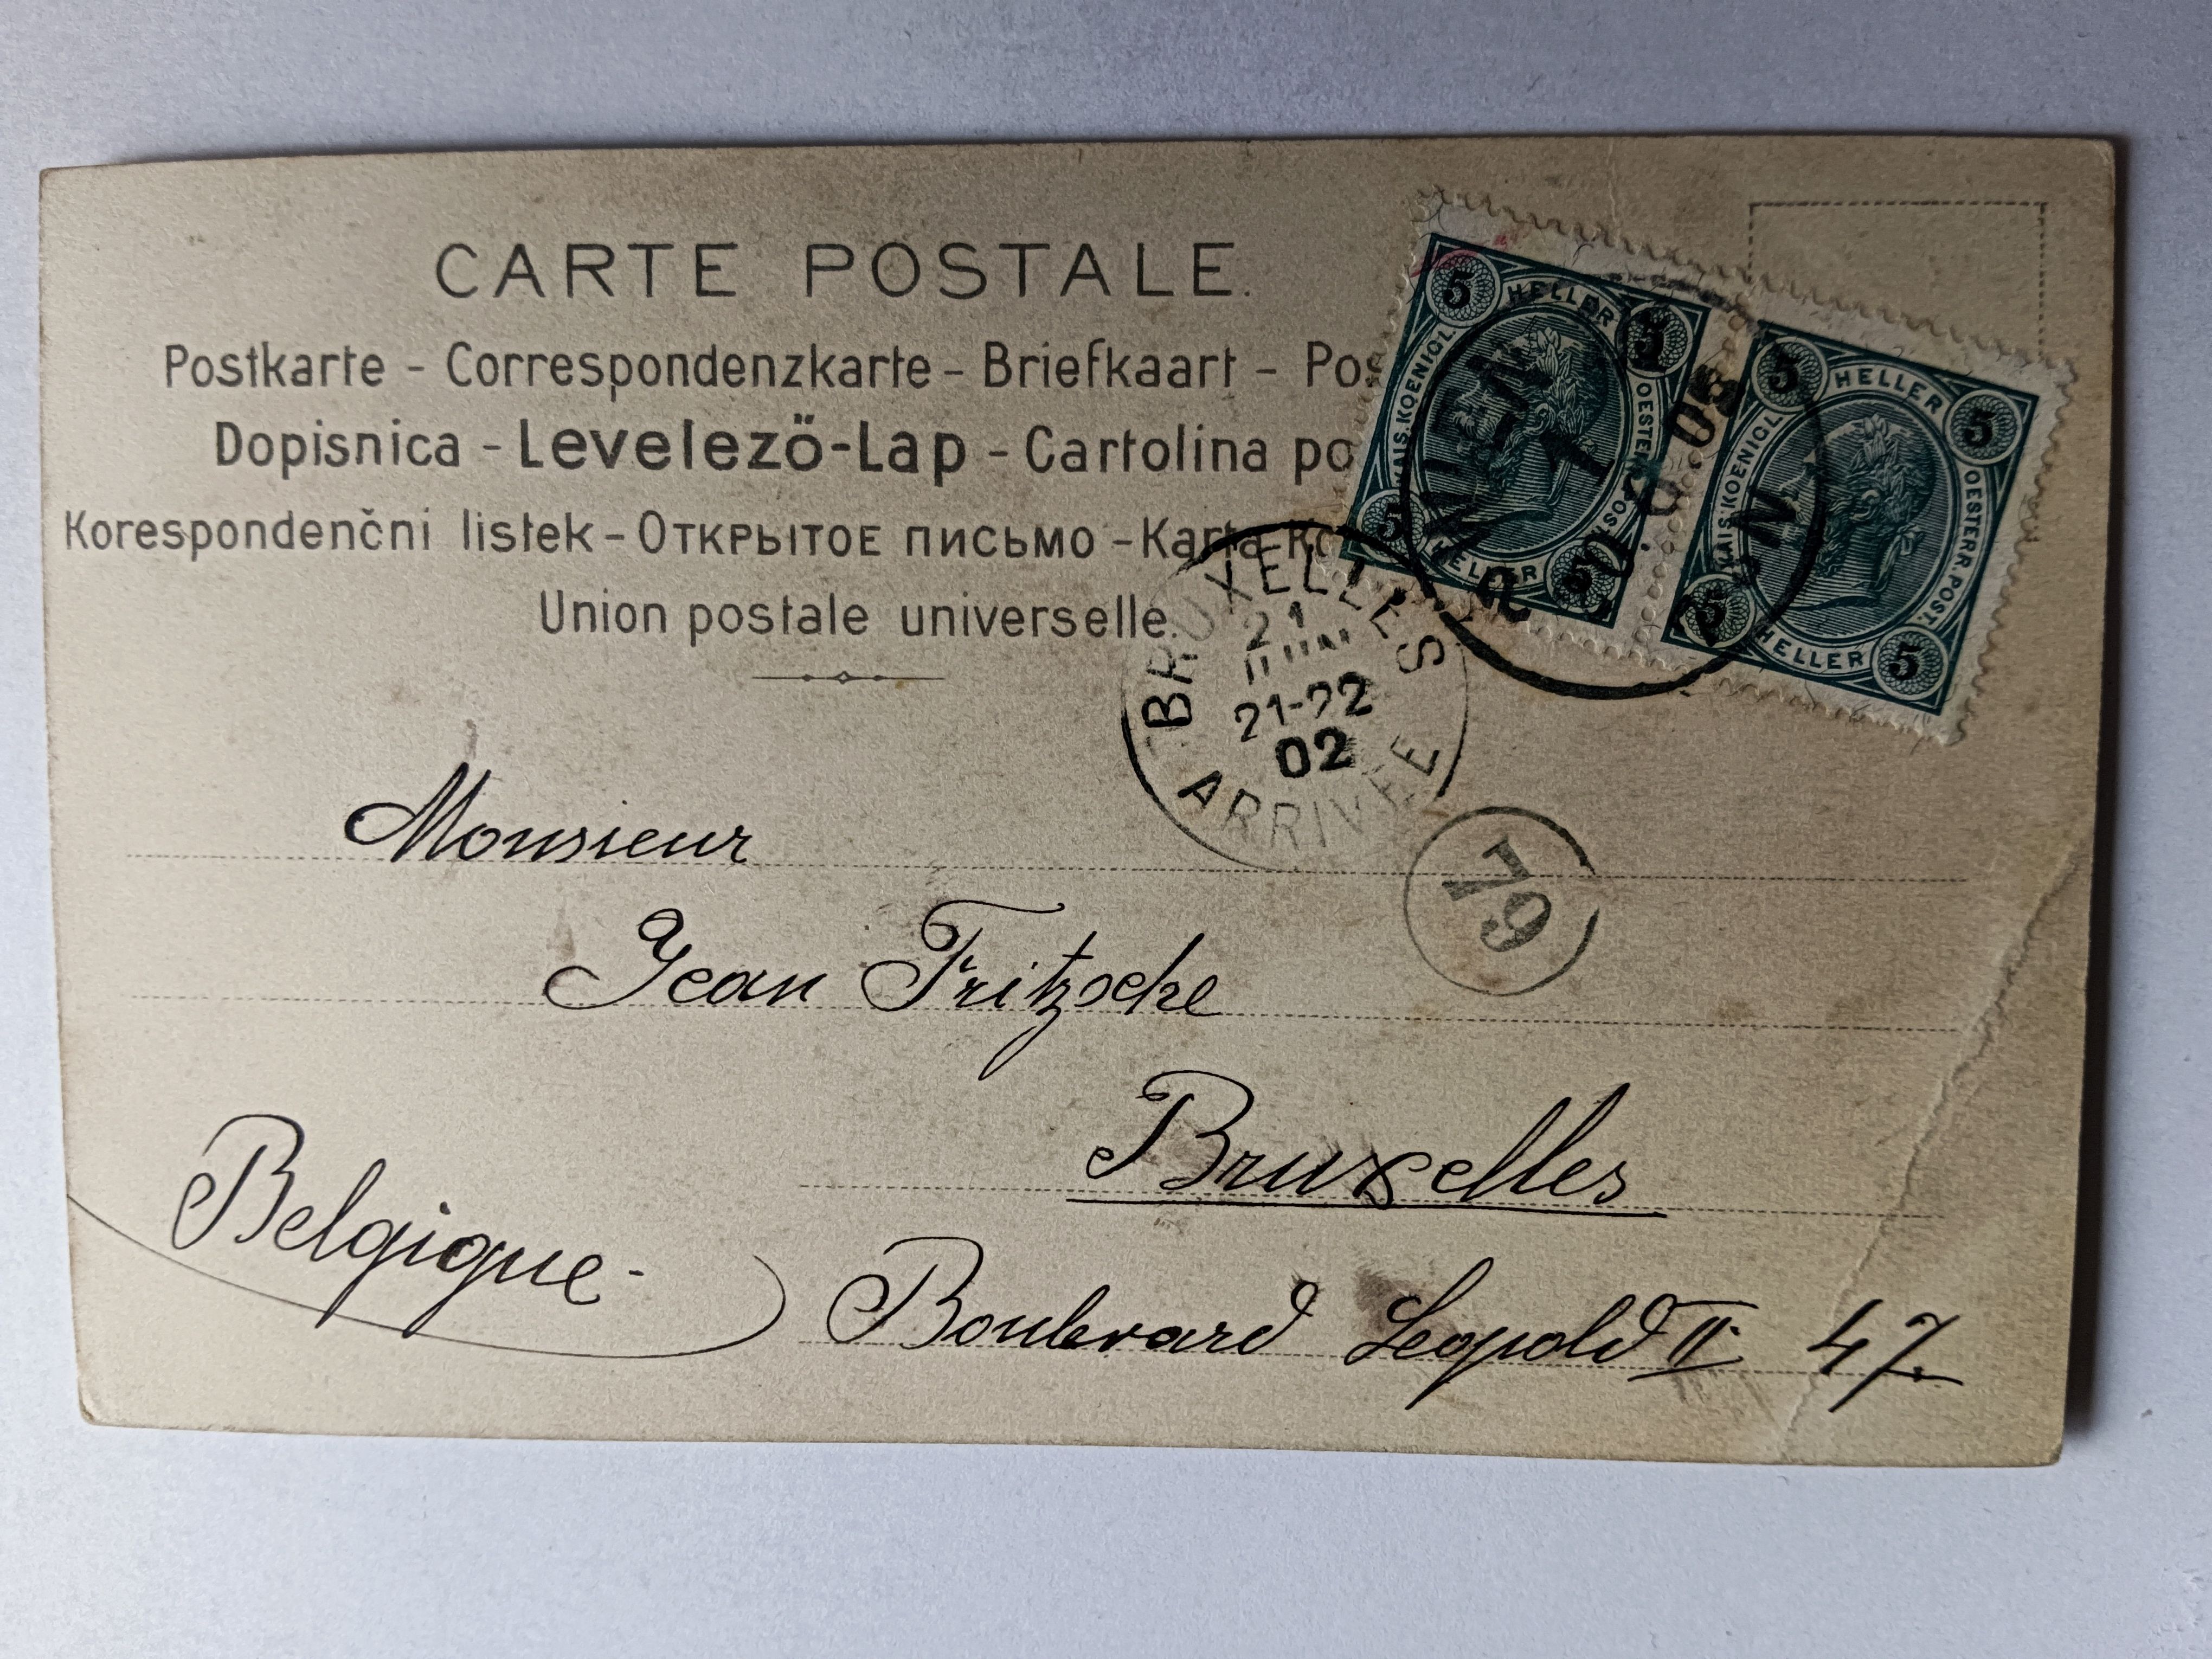 CARTE POSTALE.
Postkarte - Correspondenzkarte - Briefkaart - Pos
Dopisnica - Levelező-Lap - Cartolina po
Korespondenčni listek - Открытое письмо - Karta Ko
Union postale universelle.
5 HELLER 5
KAIS. KOENIGL. OESTERR. POST.
5 HELLER 5
5 HELLER 5
KAIS. KOENIGL. OESTERR. POST.
5 HELLER 5
WIEN
BRUXELLES
21
JUIN
21-22
02
ARRIVEE
79
Monsieur
Jean Fritzsche
Bruxelles
Belgique -
Boulevard Leopold II 47.